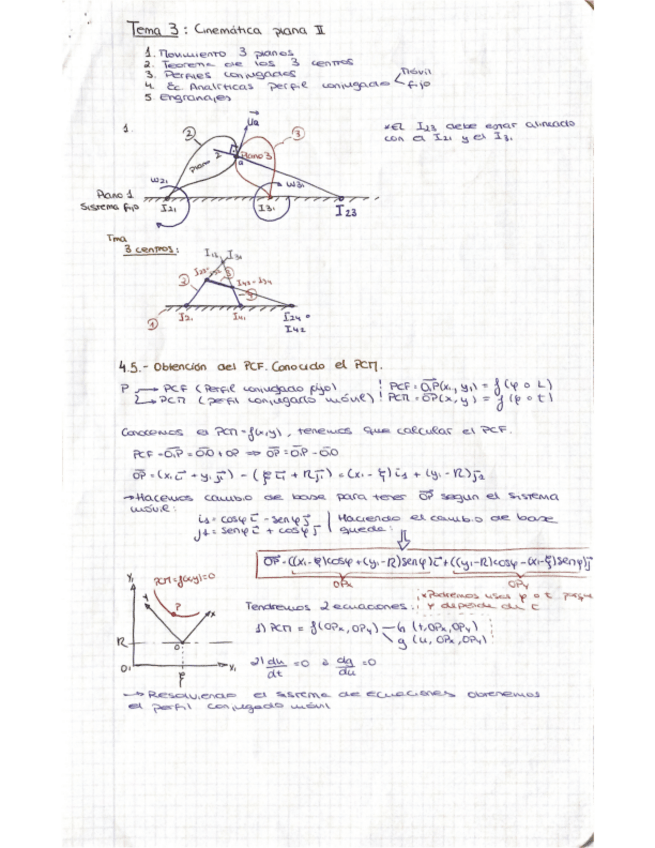 Tema 3: Cinemática plana II
1. Movimiento 3 planos
2. Teorema de los 3 centros
3. Perfiles conjugados
4. Ec. Analíticas perfil conjugado < móvil
fijo
5. Engranajes
1.
Ua
2
3
Plano 2
Plano 3
a
*El I23 debe estar alineado
con el I21 y el I31
ω21
ω31
Plano 1
Sistema fijo
I21
I31
I23
Tma
3 centros:
1
I21
I41
I24 o
I42
4.5.- Obtención del PCF. Conocido el PCM.
P → PCF (Perfil conjugado fijo)
→ PCM (perfil conjugado móvil)
PCF = O1P(x1, y1) = f(φ o t)
PCM = OP(x, y) = f(φ o t)
Conocemos el PCM = f(x,y), tenemos que calcular el PCF.
PCF = O1P = O1O + OP ⇒ OP = O1P - O1O
OP = (x1 i + y1 j) - (ξ i1 + η j1) = (x1 - ξ) i1 + (y1 - η) j1
→ Hacemos cambio de base para tener OP según el sistema
móvil:
i1 = cosφ i - senφ j
j1 = senφ i + cosφ j
Haciendo el cambio de base
queda:
OP = ((x1-ξ)cosφ + (y1-η)senφ) i + ((y1-η)cosφ - (x1-ξ)senφ) j
OPx
OPy
Y1
PCM = f(x,y) = 0
P
x
η
O
O1
X1
ξ
Tendremos 2 ecuaciones:
*Podremos usar φ o t porque
φ depende de t
1) PCM = f(OPx, OPy)
h (t, OPx, OPy)
g (u, OPx, OPy)
2) du/dt = 0 o dg/du = 0
→ Resolviendo el sistema de ecuaciones obtenemos
el perfil conjugado móvil